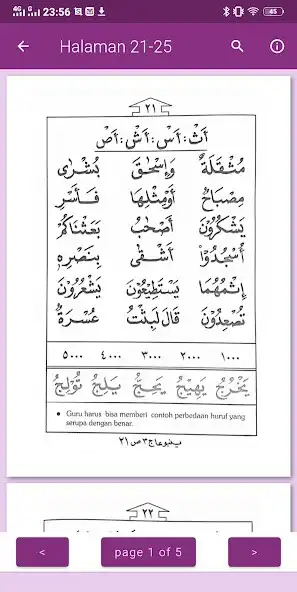 4G 4G 23:56 45
Halaman 21-25
٢١
اَثْ : اَسْ : اَشْ : اَصْ
مُثْقَلَةٌ وَاِسْحٰقَ بُشْرٰى
مِصْبَاحٌ اَوْمِثْلِهَا فَاَسْرِ
يَشْكُرُوْنَ اَصْحٰبُ بَعَثْنَاكُمْ
اُسْجُدُوْا اَشْقٰى بِنَصْرِهِ
اِثْمُهُمَا يَسْتَطِيْعُوْنَ يَشْعُرُوْنَ
تُصْعِدُوْنَ قَالَ لَبِثْتُ عُسْرَةٌ
١٠٠٠ ٢٠٠٠ ٣٠٠٠ ٤٠٠٠ ٥٠٠٠
يَخْرُجُ يَهِيْجُ يَلِجُ تُوْلِجُ
• Guru harus bisa memberi contoh perbedaan huruf yang
serupa dengan benar.
ينبوعا ج ٣ ص ٢١
٢٢
< page 1 of 5 >